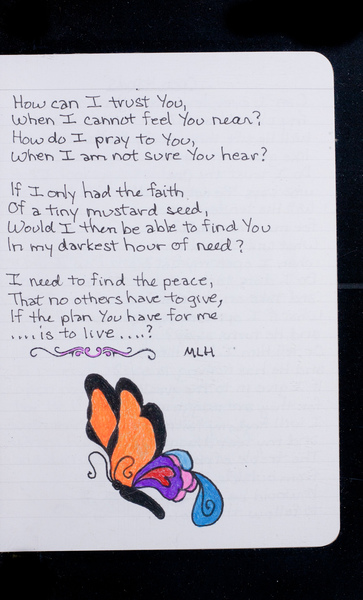 How can I trust You,
When I cannot feel You near?
How do I pray to You,
When I am not sure You hear?
If I only had the faith
Of a tiny mustard seed,
Would I then be able to find You
In my darkest hour of need?
I need to find the peace,
That no others have to give,
If the plan You have for me
.... is to live ....?
MLH